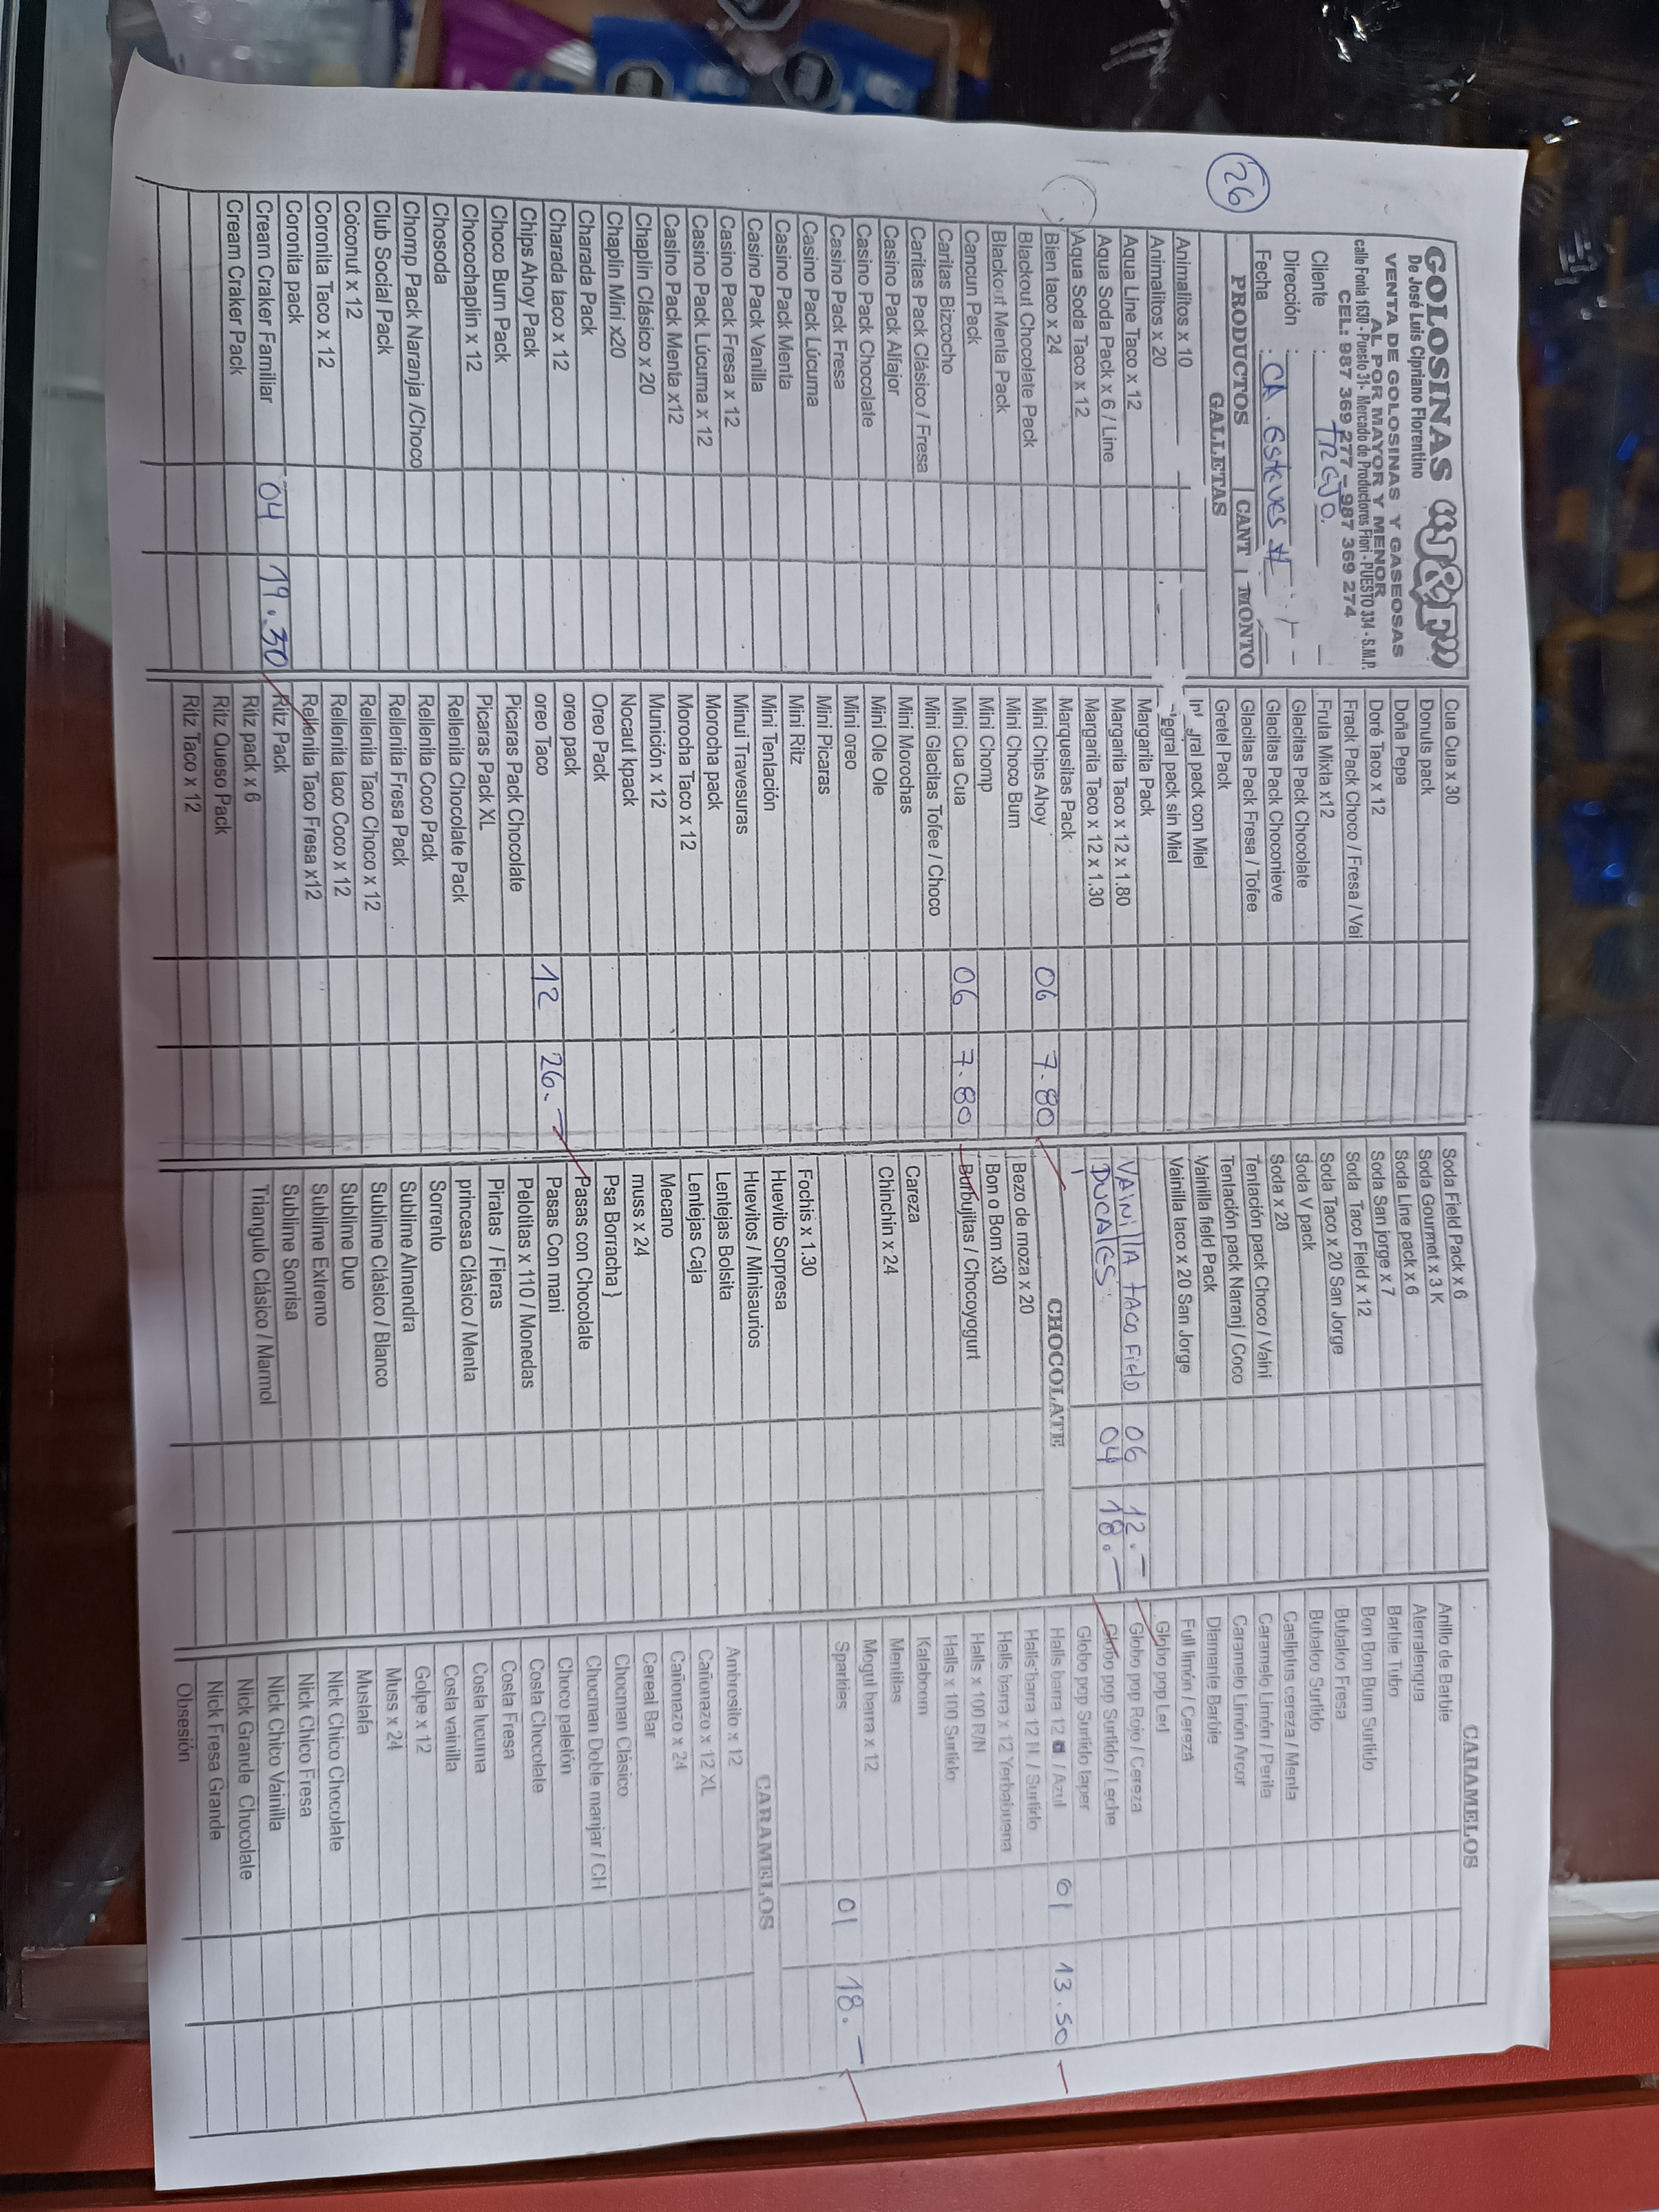 26
GOLOSINAS "J&F"
De José Luis Cipriano Florentino
VENTA DE GOLOSINAS Y GASEOSAS
AL POR MAYOR Y MENOR
calle Fonia 1630 - Puesto 31- Mercado de Productores Fiori - PUESTO 334 - S.M.P.
CEL: 987 369 277 - 987 369 274
Cliente : TREJO.
Dirección : CA. Esteves #
Fecha
PRODUCTOS CANT MONTO
GALLETAS
Animalitos x 10
Animalitos x 20
Aqua Line Taco x 12
Aqua Soda Pack x 6 / Line
Aqua Soda Taco x 12
Bien taco x 24
Blackout Chocolate Pack
Blackout Menta Pack
Cancun Pack
Caritas Bizcocho
Caritas Pack Clásico / Fresa
Casino Pack Alfajor
Casino Pack Chocolate
Casino Pack Fresa
Casino Pack Lúcuma
Casino Pack Menta
Casino Pack Vanilla
Casino Pack Fresa x 12
Casino Pack Lúcuma x 12
Casino Pack Menta x12
Chaplin Clásico x 20
Chaplin Mini x20
Charada Pack
Charada taco x 12
Chips Ahoy Pack
Choco Burn Pack
Chocochaplin x 12
Chosoda
Chomp Pack Naranja /Choco
Club Social Pack
Coconut x 12
Coronita Taco x 12
Coronita pack
Cream Craker Familiar 04 19.30
Cream Craker Pack
Cua Cua x 30
Donuts pack
Doña Pepa
Doré Taco x 12
Frack Pack Choco / Fresa / Vai
Fruta Mixta x12
Glacitas Pack Chocolate
Glacitas Pack Choconieve
Glacitas Pack Fresa / Tofee
Gretel Pack
gral pack con Miel
egral pack sin Miel
Margarita Pack
Margarita Taco x 12 x 1.80
Margarita Taco x 12 x 1.30
Marquesitas Pack
Mini Chips Ahoy 06 7.80
Mini Choco Bum
Mini Chomp
Mini Cua Cua 06 7.80
Mini Glacitas Tofee / Choco
Mini Morochas
Mini Ole Ole
Mini oreo
Mini Picaras
Mini Ritz
Mini Tentación
Minui Travesuras
Morocha pack
Morocha Taco x 12
Munición x 12
Nocaut kpack
Oreo Pack
oreo pack
oreo Taco 12 26.-
Picaras Pack Chocolate
Picaras Pack XL
Rellenita Chocolate Pack
Rellenita Coco Pack
Rellenita Fresa Pack
Rellenita Taco Choco x 12
Rellenita taco Coco x 12
Rellenita Taco Fresa x12
Ritz Pack
Ritz pack x 6
Ritz Queso Pack
Ritz Taco x 12
Soda Field Pack x 6
Soda Gourmet x 3 K
Soda Line pack x 6
Soda San jorge x 7
Soda Taco Field x 12
Soda Taco x 20 San Jorge
Soda V pack
Soda x 28
Tentación pack Choco / Vaini
Tentación pack Naranj / Coco
Vainilla field Pack
Vainilla taco x 20 San Jorge
VAINILLA tACO FiElD 06 12.-
DUCALES 04 18.-
CHOCOLATE
Bezo de moza x 20
Bon o Bom x30
Burbujitas / Chocoyogurt
Careza
Chinchin x 24
Fochis x 1.30
Huevito Sorpresa
Huevitos / Minisaurios
Lentejas Bolsita
Lentejas Caja
Mecano
muss x 24
Psa Borracha }
Pasas con Chocolate
Pasas Con mani
Pelotitas x 110 / Monedas
Piratas / Fieras
princesa Clásico / Menta
Sorrento
Sublime Almendra
Sublime Clásico / Blanco
Sublime Duo
Sublime Extremo
Sublime Sonrisa
Triangulo Clásico / Marmol
CARAMELOS
Anillo de Barbie
Aterralengua
Barbie Tubo
Bon Bon Bum Surtido
Bubaloo Fresa
Bubaloo Surtido
Casliptus cereza / Menta
Caramelo Limón / Perita
Caramelo Limón Arcor
Diamente Barbie
Full limón / Cereza
Globo pop Led
Globo pop Rojo / Cereza
Globo pop Surtido / Leche
Globo pop Surtido taper
Halls barra 12 / Azul 01 13.50
Halls barra 12 N / Surtido
Halls barra x 12 Yerbabuena
Halls x 100 R/N
Halls x 100 Surtido
Kataboom
Mentitas
Mogul barra x 12
Sparkies 01 18.-
CARAMELOS
Ambrosito x 12
Cañonazo x 12 XL
Cañonazo x 24
Cereal Bar
Chocman Clásico
Chocman Doble manjar / CH
Choco paletón
Costa Chocolate
Costa Fresa
Costa lucuma
Costa vainilla
Golpe x 12
Muss x 24
Mustafa
Nick Chico Chocolate
Nick Chico Fresa
Nick Chico Vainilla
Nick Grande Chocolate
Nick Fresa Grande
Obsesión